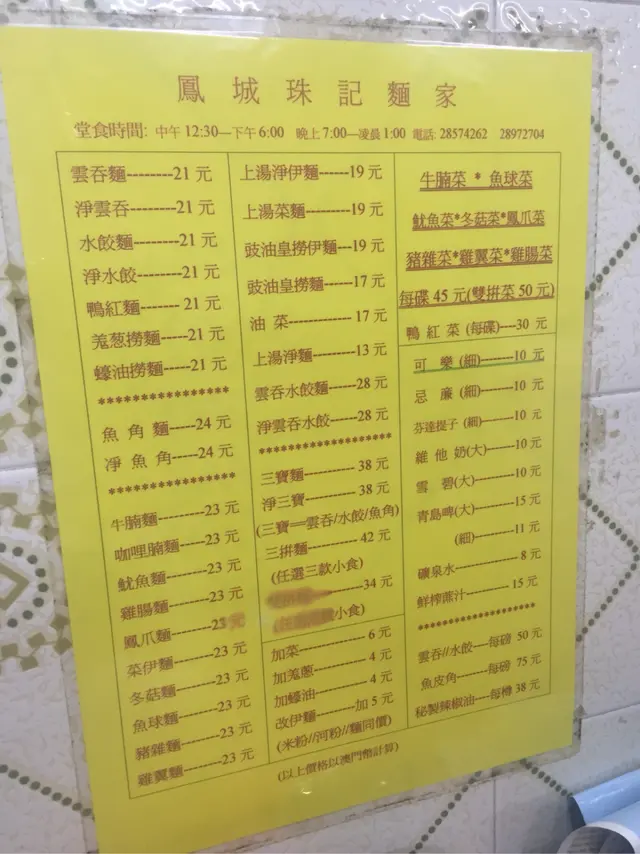 鳳城珠記麵家
堂食時間: 中午 12:30—下午 6:00 晚上 7:00—凌晨 1:00 電話: 28574262 28972704
雲吞麵---------21 元
淨雲吞---------21 元
水餃麵--------21 元
淨水餃--------21 元
鴨紅麵------- 21 元
羗葱撈麵------21 元
蠔油撈麵------21 元
*****************
魚 角 麵------24 元
凈 魚 角------24 元
*****************
牛腩麵---------23 元
咖哩腩麵------23 元
魷魚麵--------23 元
雞腸麵--------23 元
鳳爪麵--------23 元
菜伊麵--------23 元
冬菇麵--------23 元
魚球麵--------23 元
豬雜麵--------23 元
雞翼麵--------23 元
上湯淨伊麵------19 元
上湯菜麵---------19 元
豉油皇撈伊麵---19 元
豉油皇撈麵------17 元
油 菜-------------17 元
上湯淨麵---------13 元
雲吞水餃麵------28 元
淨雲吞水餃------28 元
*******************
三寶麵----------- 38 元
淨三寶----------- 38 元
(三寶══雲吞/水餃/魚角)
三拼麵----------- 42 元
(任選三款小食)
-----------34 元
小食)
加菜-------------- 6 元
加羗蔥----------- 4 元
加蠔油----------- 4 元
改伊麵--------加 5 元
(米粉//河粉//麵同價)
牛腩菜 * 魚球菜
魷魚菜*冬菇菜*鳳爪菜
豬雜菜*雞翼菜*雞腸菜
每碟 45 元(雙拼菜 50 元)
鴨 紅 菜 (每碟)----30 元
可 樂 (細)---------10 元
忌 廉 (細)---------10 元
芬達提子 (細)------10 元
維 他 奶(大)-------10 元
雪 碧(大)----------10 元
青島啤(大)---------15 元
(細)---------11 元
礦泉水------------- 8 元
鮮榨蔗汁---------- 15 元
*******************
雲吞//水餃----每磅 50 元
魚皮角--------每磅 75 元
秘製辣椒油----每樽 38 元
(以上價格以澳門幣計算)